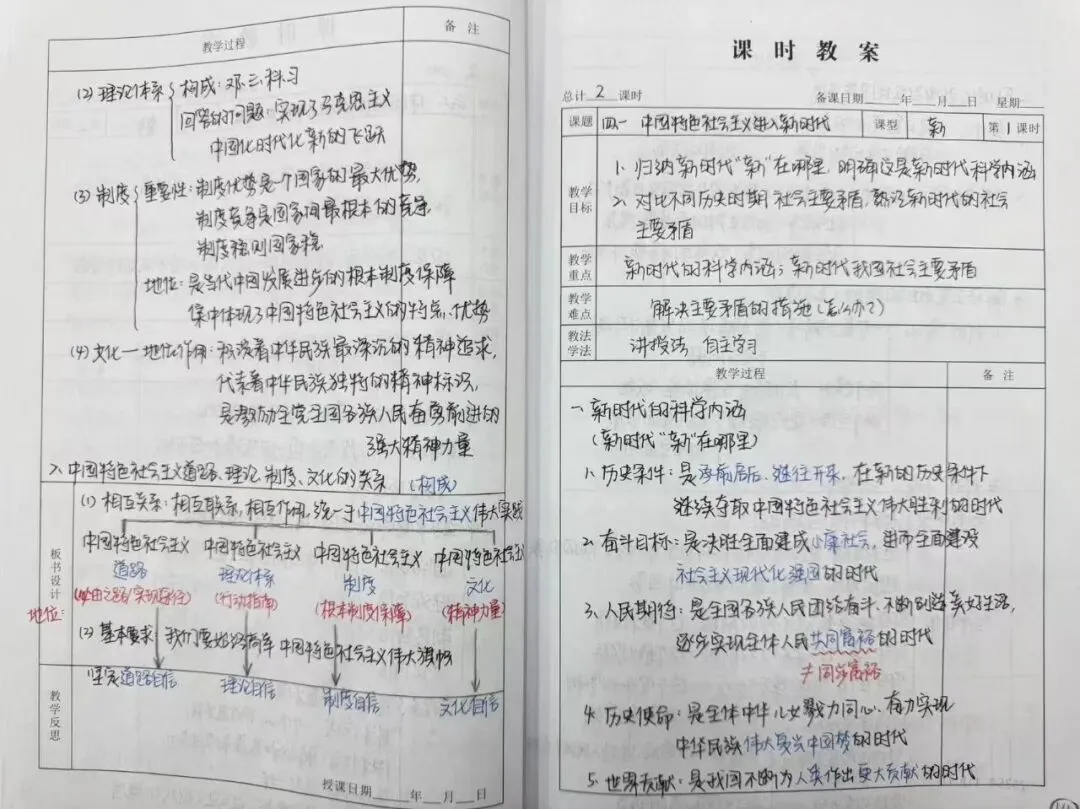 教学过程 备注
(2) 理论体系 构成：邓、三、科、习
回答的问题：实现了马克思主义
中国化时代化新的飞跃
(3) 制度 重要性：制度优势是一个国家的最大优势,
制度竞争是国家间最根本的竞争
制度稳则国家稳
地位：是当代中国发展进步的根本制度保障
集中体现了中国特色社会主义的特点、优势
(4) 文化—地位作用：积淀着中华民族最深沉的精神追求,
代表着中华民族独特的精神标识,
是激励全党全国各族人民奋勇前进的
强大精神力量
2、中国特色社会主义道路、理论、制度、文化的关系 (构成)
板书设计
(1) 相互关系：相互联系,相互作用,统一于中国特色社会主义伟大实践
中国特色社会主义 中国特色社会主义 中国特色社会主义 中国特色社会主义
道路 理论体系 制度 文化
地位： (必由之路/实现路径) (行动指南) (根本制度保障) (精神力量)
(2) 基本要求：我们要始终高举中国特色社会主义伟大旗帜
坚定道路自信 理论自信 制度自信 文化自信
教学反思
授课日期 年 月 日
课时教案
总计 2 课时 备课日期 年 月 日 星期
课题 四、一 中国特色社会主义进入新时代 课型 新 第1课时
教学目标
1. 归纳新时代“新”在哪里,明确这是新时代科学内涵
2. 对比不同历史时期社会主要矛盾,熟识新时代的社会
主要矛盾
教学重点 新时代的科学内涵；新时代我国社会主要矛盾
教学难点 解决主要矛盾的措施(怎么办?)
教法学法 讲授法 自主学习
教学过程 备注
一、新时代的科学内涵
(新时代“新”在哪里)
1. 历史条件：是承前启后、继往开来,在新的历史条件下
继续夺取中国特色社会主义伟大胜利的时代
2. 奋斗目标：是决胜全面建成小康社会,进而全面建设
社会主义现代化强国的时代
3. 人民期待：是全国各族人民团结奋斗、不断创造美好生活,
逐步实现全体人民共同富裕的时代
≠同步富裕
4. 历史使命：是全体中华儿女勠力同心、奋力实现
中华民族伟大复兴中国梦的时代
5. 世界贡献：是我国不断为人类作出更大贡献的时代